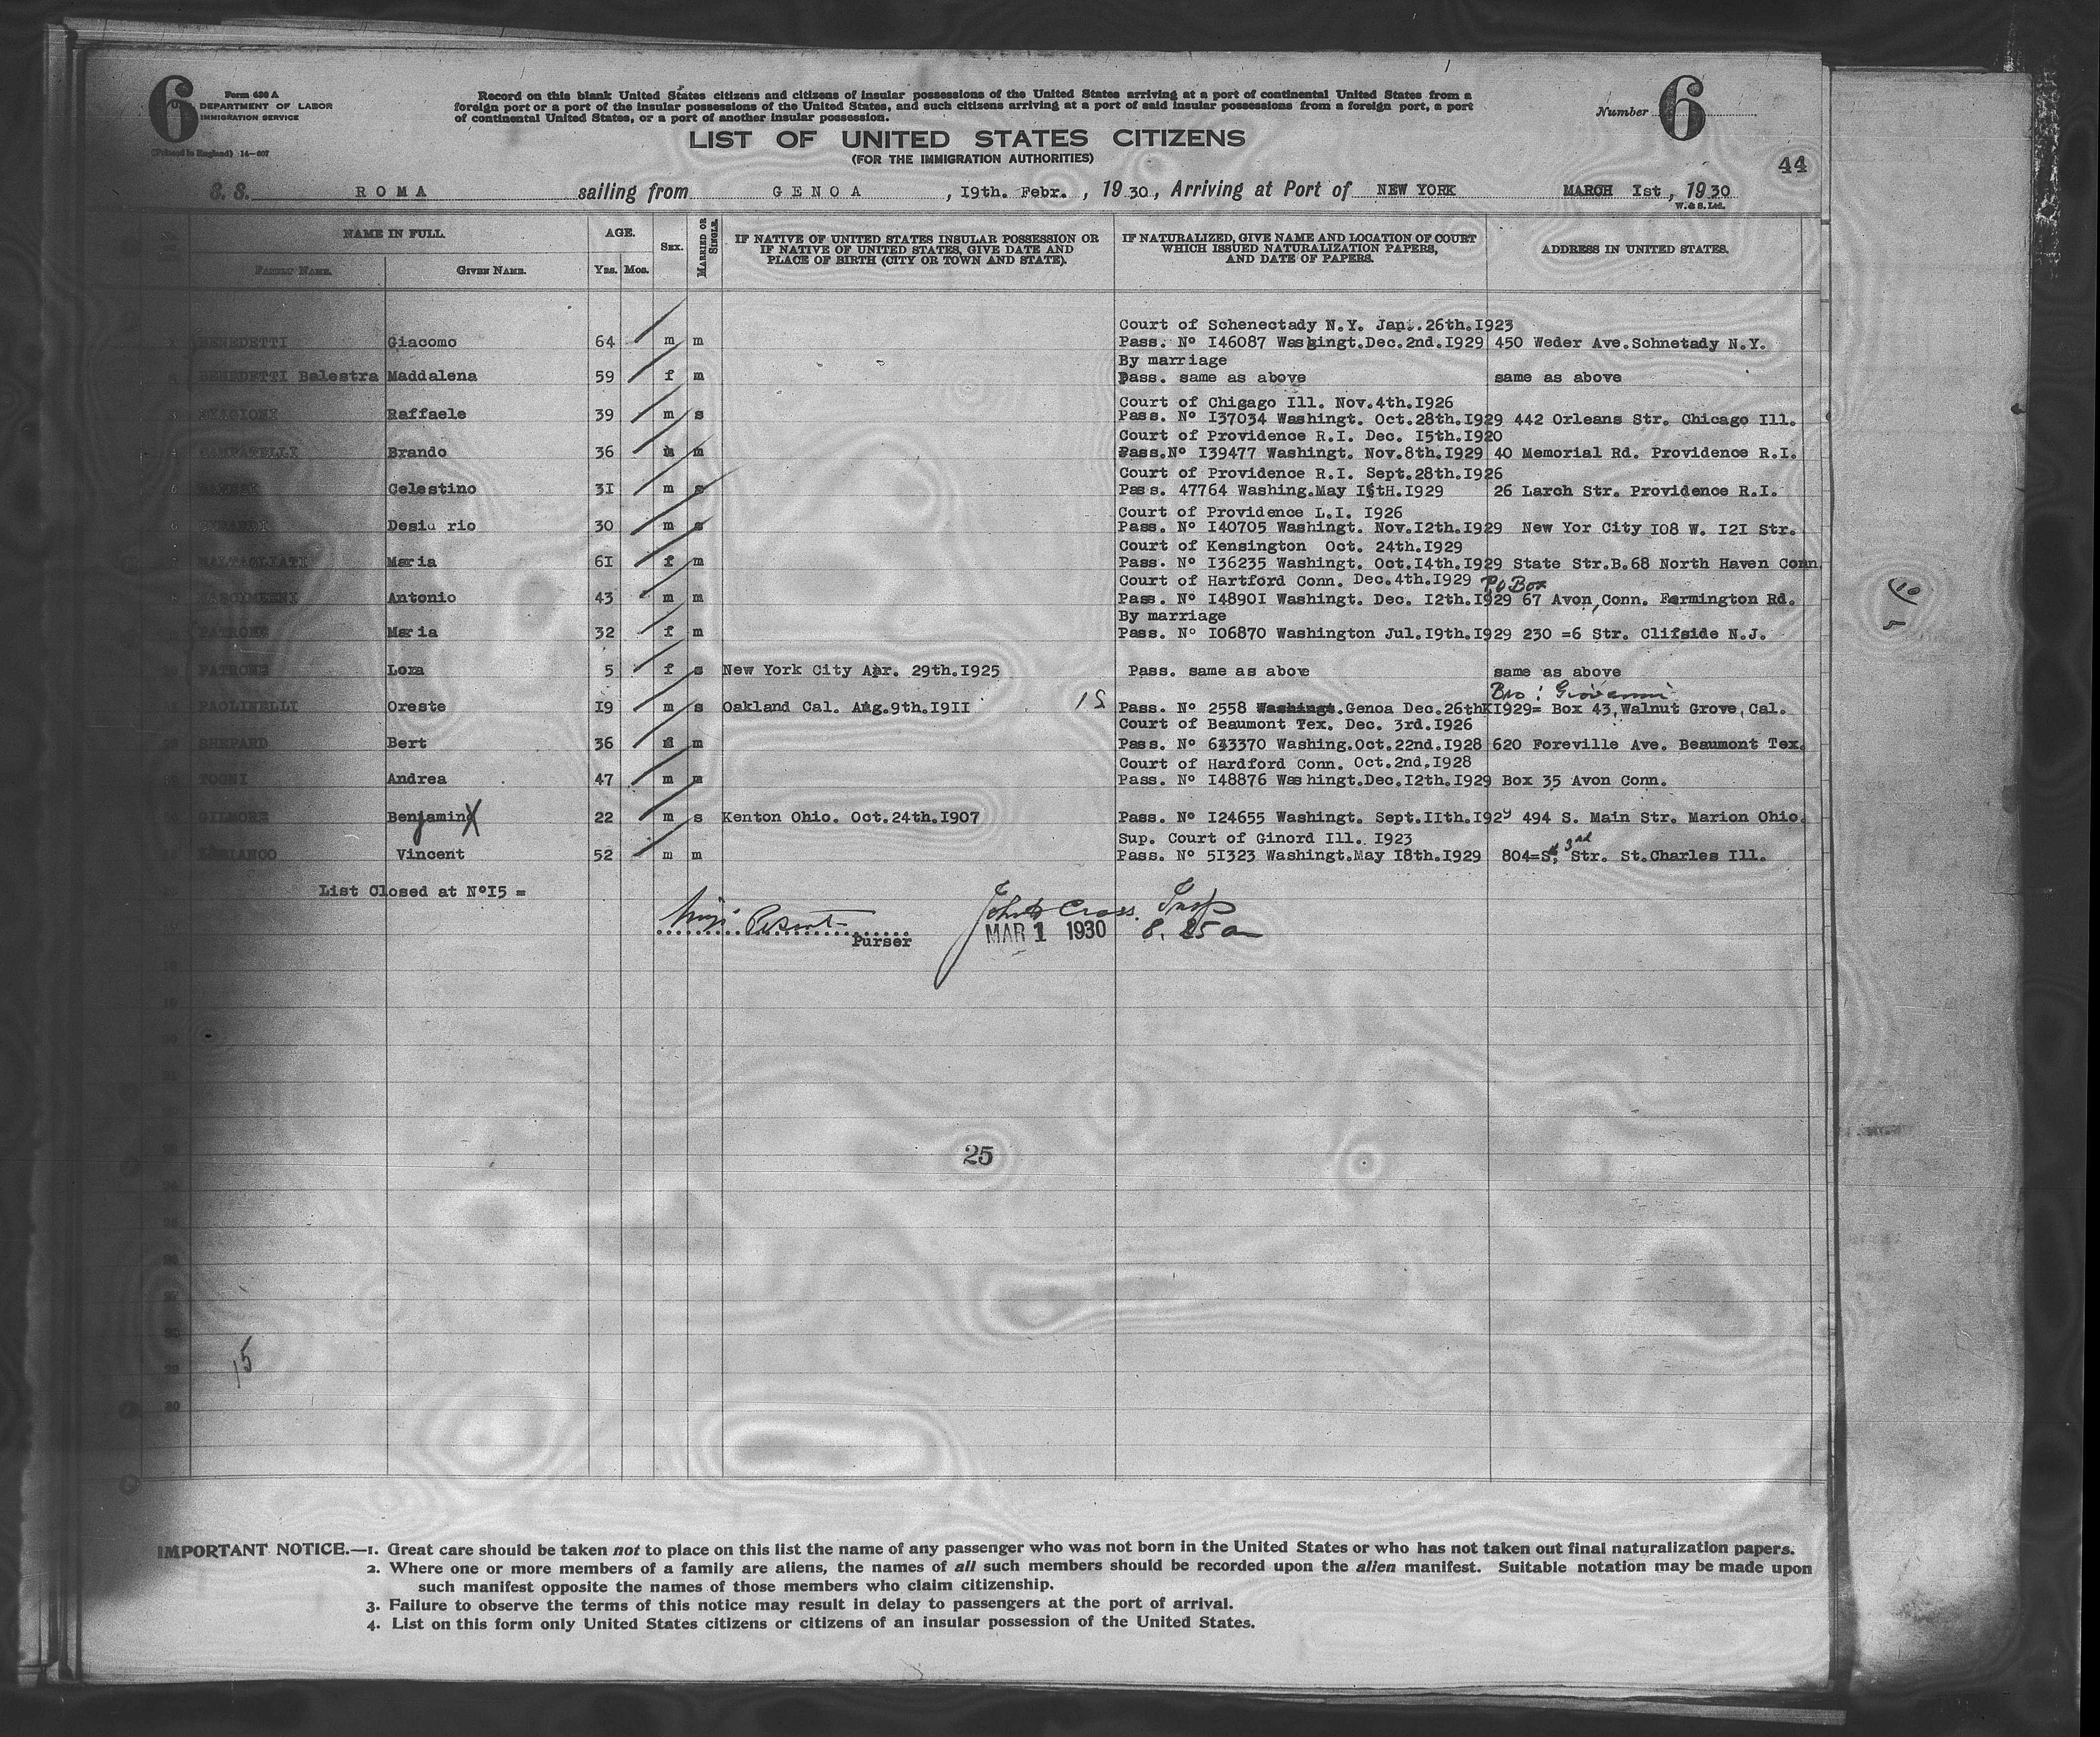 6
Form 630 A
DEPARTMENT OF LABOR
IMMIGRATION SERVICE
(Printed in England) 14-607
Record on this blank United States citizens and citizens of insular possessions of the United States arriving at a port of continental United States from a
foreign port or a port of the insular possessions of the United States, and such citizens arriving at a port of said insular possessions from a foreign port, a port
of continental United States, or a port of another insular possession.
Number 6
LIST OF UNITED STATES CITIZENS
(FOR THE IMMIGRATION AUTHORITIES)
44
S.S. ROMA sailing from GENOA, 19th. Febr., 1930, Arriving at Port of NEW YORK MARCH Ist, 1930
W. & S. Ltd.
NAME IN FULL. AGE. SEX. MARRIED OR SINGLE. IF NATIVE OF UNITED STATES INSULAR POSSESSION OR IF NATIVE OF UNITED STATES, GIVE DATE AND PLACE OF BIRTH (CITY OR TOWN AND STATE). IF NATURALIZED, GIVE NAME AND LOCATION OF COURT WHICH ISSUED NATURALIZATION PAPERS, AND DATE OF PAPERS. ADDRESS IN UNITED STATES.
FAMILY NAME. GIVEN NAME. YRS. MOS.
Court of Schenectady N.Y. Jan..26th.I923
BENEDETTI Giacomo 64 m m Pass. Nº I46087 Washingt.Dec.2nd.I929 450 Weder Ave.Schnetady N.Y.
By marriage
BENEDETTI Balestra Maddalena 59 f m Pass. same as above same as above
Court of Chigago Ill. Nov.4th.I926
Raffaele 39 m s Pass. Nº I37034 Washingt. Oct.28th.I929 442 Orleans Str. Chicago Ill.
Court of Providence R.I. Dec. I5th.I920
CAMPATELLI Brando 36 m m Pass.Nº I39477 Washingt. Nov.8th.I929 40 Memorial Rd. Providence R.I.
Court of Providence R.I. Sept.28th.I926
Celestino 3I m s Pass. 47764 Washing.May I5tH.I929 26 Larch Str. Providence R.I.
Court of Providence L.I. I926
Desiu rio 30 m s Pass. Nº I40705 Washingt. Nov.I2th.I929 New Yor City I08 W. I2I Str.
Court of Kensington Oct. 24th.I929
MALTAGLIATI Maria 6I f m Pass. Nº I36235 Washingt. Oct.I4th.I929 State Str.B.68 North Haven Conn.
Court of Hartford Conn. Dec.4th.I929 P.O Box
Antonio 43 m m Pass. Nº I4890I Washingt. Dec. I2th.I929 67 Avon, Conn. Farmington Rd.
By marriage
PATRONE Maria 32 f m Pass. Nº I06870 Washington Jul.I9th.I929 230 =6 Str. Clifside N.J.
PATRONE Lora 5 f s New York City Apr. 29th.I925 Pass. same as above same as above
Bro: Giovanni
PAOLINELLI Oreste I9 m s Oakland Cal. Aug.9th.I9II 1S Pass. Nº 2558 Washingt.Genoa Dec.26th I929= Box 43, Walnut Grove, Cal.
Court of Beaumont Tex. Dec. 3rd.I926
SHEPARD Bert 36 m Pass. Nº 643370 Washing.Oct.22nd.I928 620 Foreville Ave. Beaumont Tex.
Court of Hardford Conn. Oct.2nd.I928
TOGNI Andrea 47 m m Pass. Nº I48876 Washingt.Dec.I2th.I929 Box 35 Avon Conn.
GILMORE Benjamin X 22 m s Kenton Ohio. Oct.24th.I907 Pass. Nº I24655 Washingt. Sept.IIth.I929 494 S. Main Str. Marion Ohio.
Sup. Court of Ginord Ill. I923
LOBIANCO Vincent 52 m m Pass. Nº 5I323 Washingt.May I8th.I929 804=S. 3rd Str. St.Charles Ill.
List Closed at NºI5 =
Purser
John Cross. Insp
MAR 1 1930 8.25 am
25
15
IMPORTANT NOTICE.—1. Great care should be taken not to place on this list the name of any passenger who was not born in the United States or who has not taken out final naturalization papers.
2. Where one or more members of a family are aliens, the names of all such members should be recorded upon the alien manifest. Suitable notation may be made upon
such manifest opposite the names of those members who claim citizenship.
3. Failure to observe the terms of this notice may result in delay to passengers at the port of arrival.
4. List on this form only United States citizens or citizens of an insular possession of the United States.